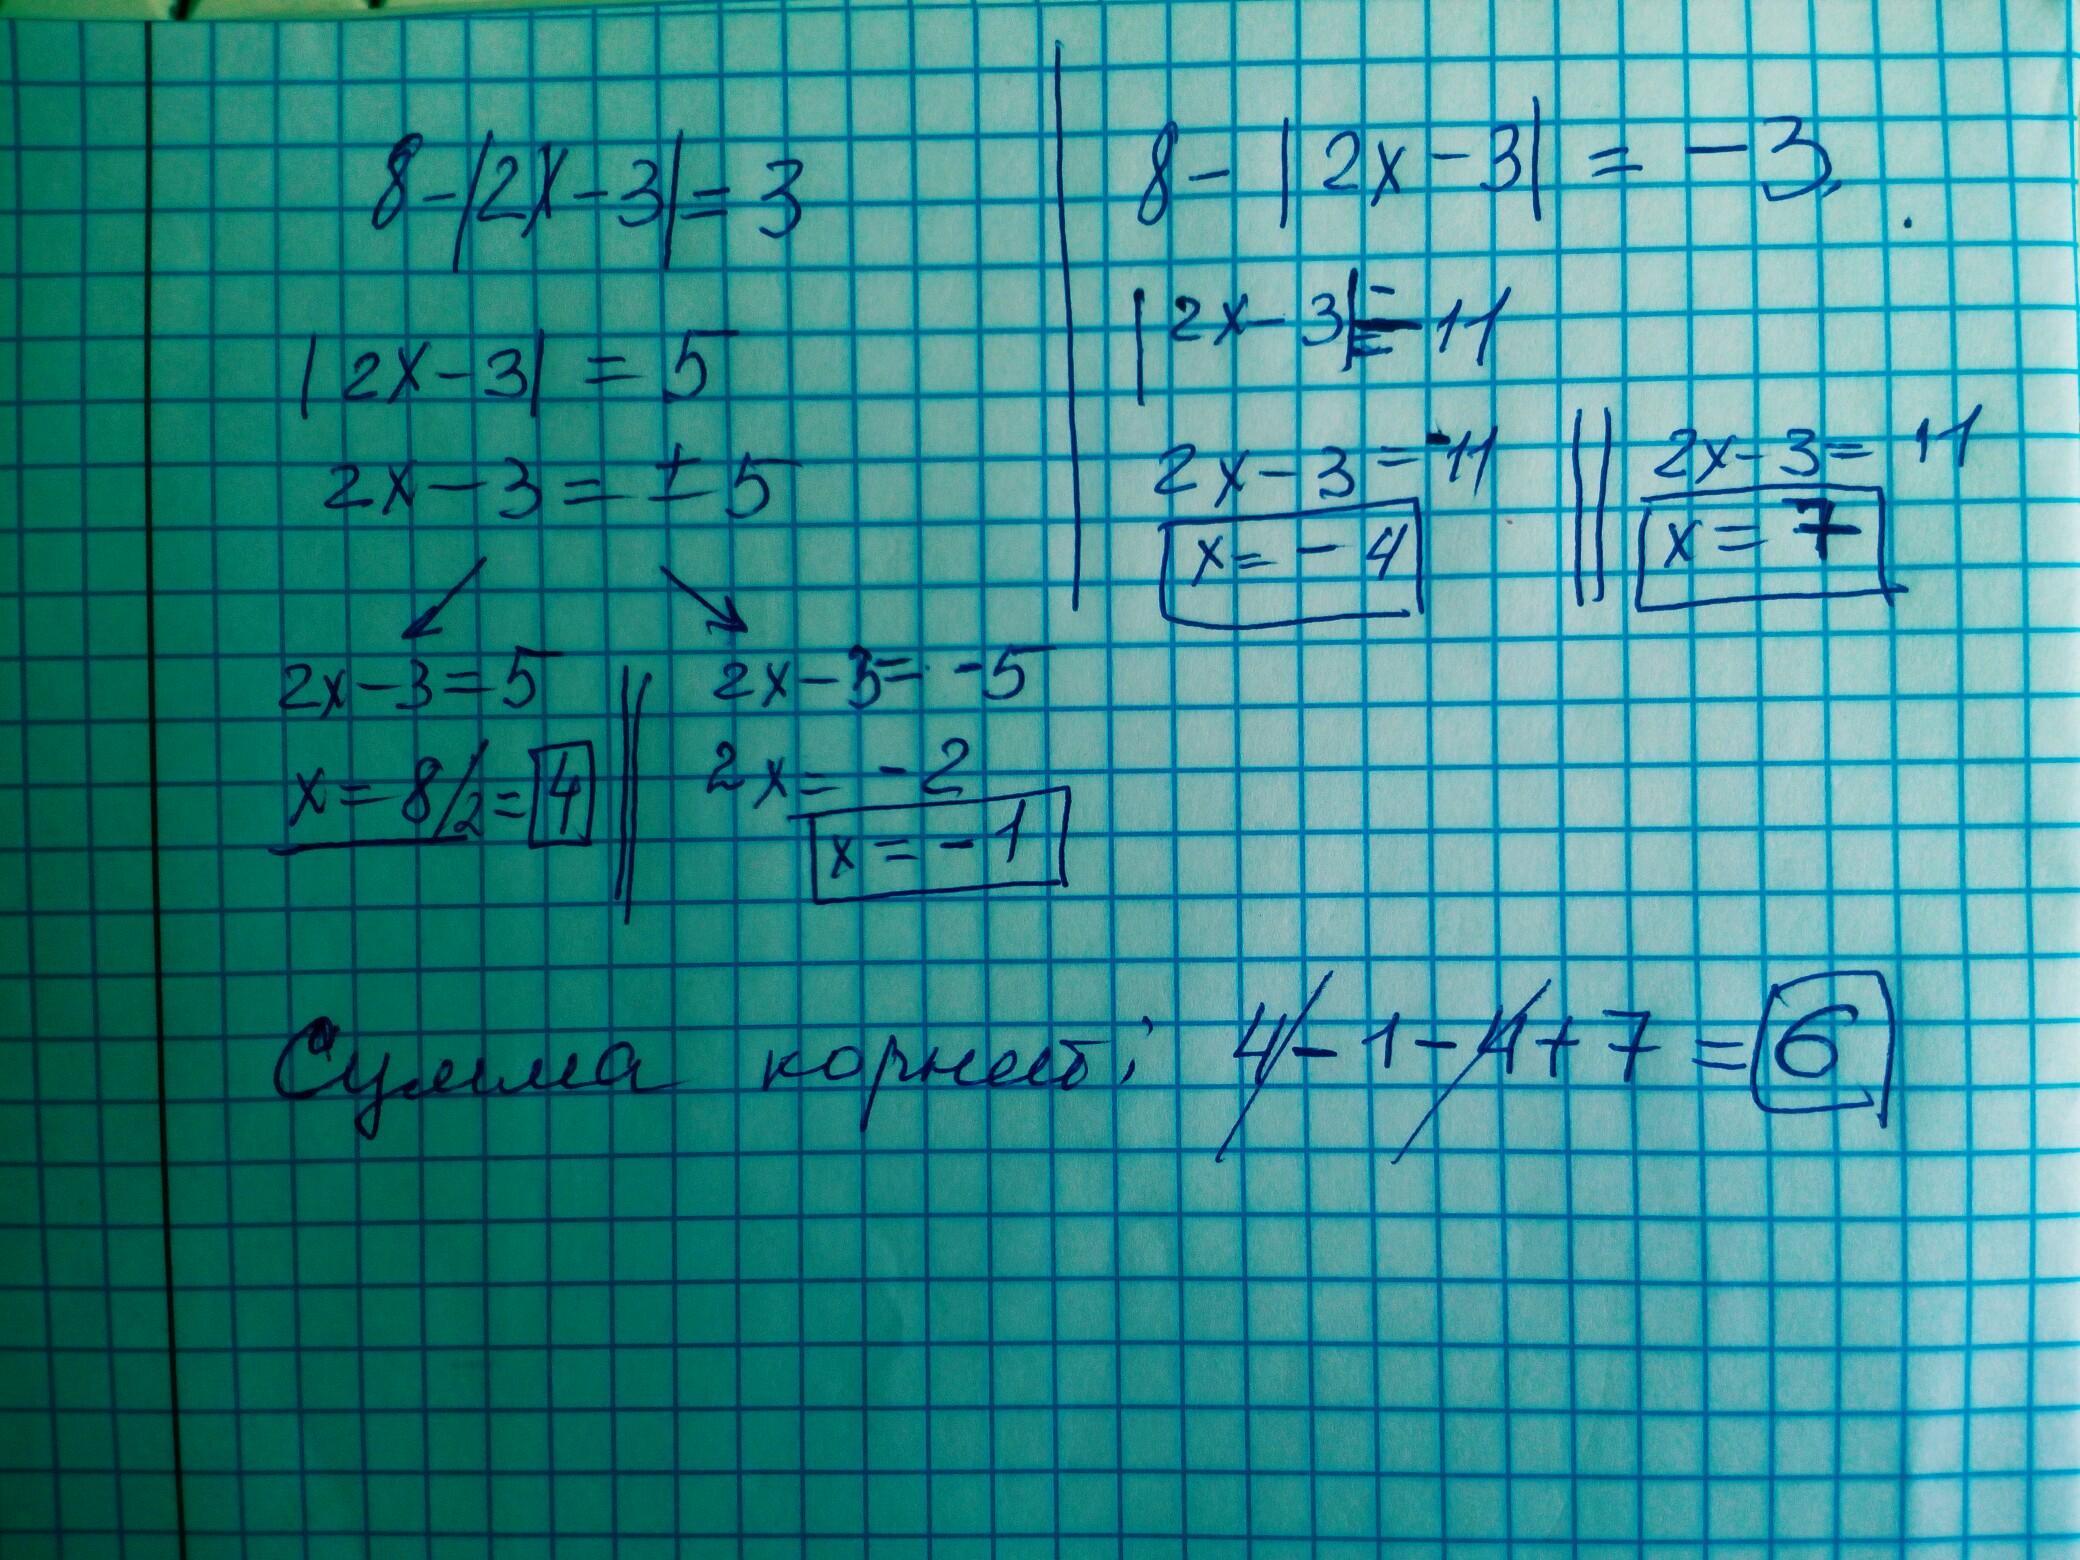 8-|2x-3|=3
|2x-3| = 5
2x-3=±5
2x-3=5
x=8/2=4
2x-3=-5
2x=-2
x=-1
8-|2x-3| = -3
|2x-3|=11
2x-3=-11
x=-4
2x-3=11
x=7
Сумма корней: 4-1-4+7=6